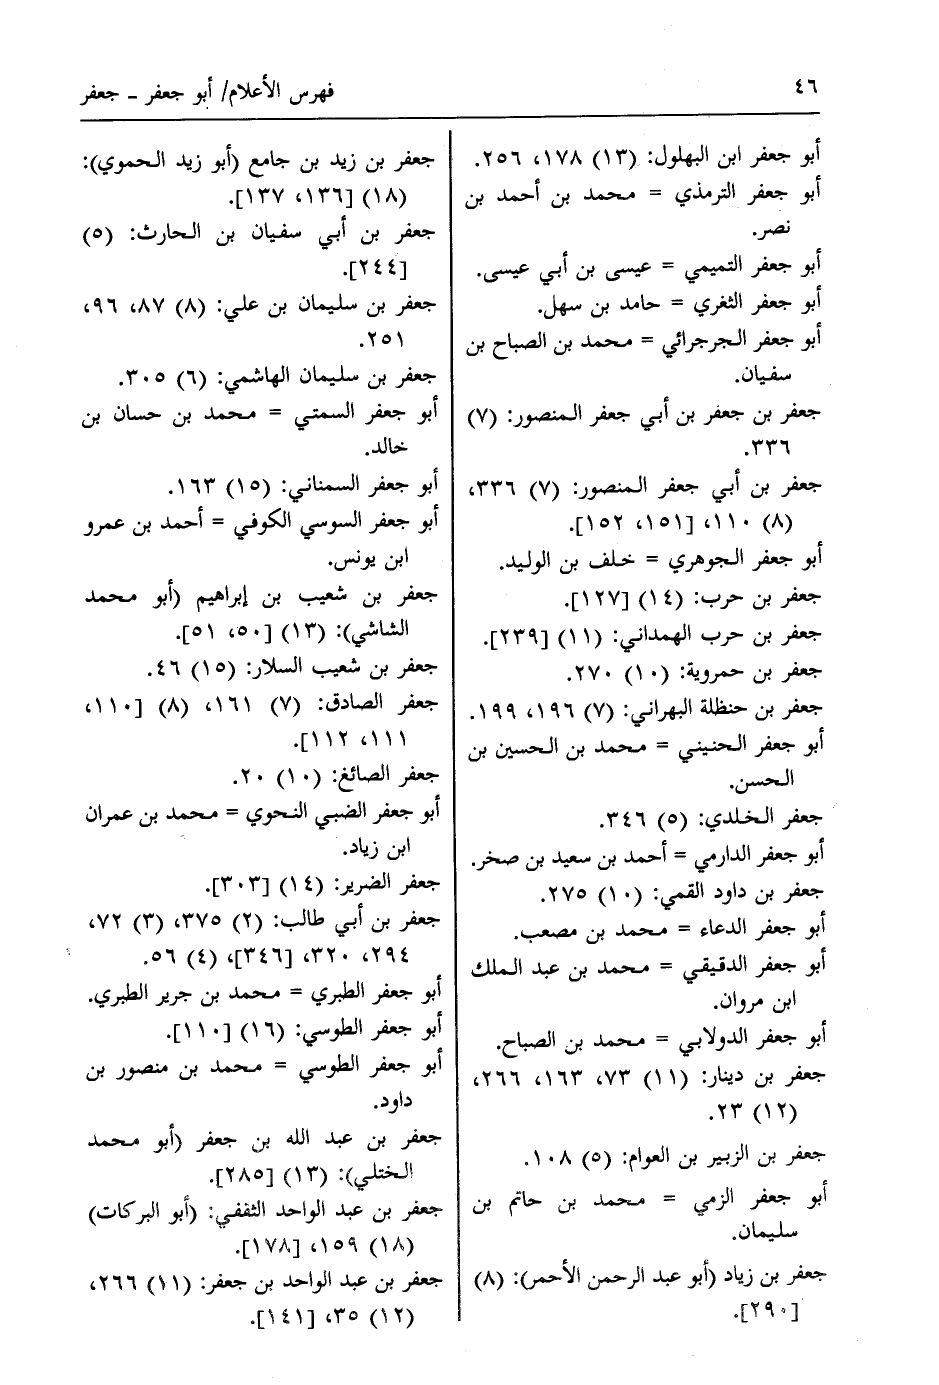 ٤٦
فهرس الأعلام/ أبو جعفر ـ جعفر
أبو جعفر ابن البهلول: (١٣) ١٧٨، ٢٥٦.
أبو جعفر الترمذي = محمد بن أحمد بن
نصر.
أبو جعفر التميمي = عيسى بن أبي عيسى.
أبو جعفر الثغري = حامد بن سهل.
أبو جعفر الجرجرائي = محمد بن الصباح بن
سفيان.
جعفر بن جعفر بن أبي جعفر المنصور: (٧)
٣٣٦.
جعفر بن أبي جعفر المنصور: (٧) ٣٣٦،
(٨) ١١٠، [١٥١، ١٥٢].
أبو جعفر الجوهري = خلف بن الوليد.
جعفر بن حرب: (١٤) [١٢٧].
جعفر بن حرب الهمداني: (١١) [٢٣٩].
جعفر بن حمروية: (١٠) ٢٧٠.
جعفر بن حنظلة البهراني: (٧) ١٩٦، ١٩٩.
أبو جعفر الحنيني = محمد بن الحسين بن
الحسن.
جعفر الخلدي: (٥) ٣٤٦.
أبو جعفر الدارمي = أحمد بن سعيد بن صخر.
جعفر بن داود القمي: (١٠) ٢٧٥.
أبو جعفر الدعاء = محمد بن مصعب.
أبو جعفر الدقيقي = محمد بن عبد الملك
ابن مروان.
أبو جعفر الدولابي = محمد بن الصباح.
جعفر بن دينار: (١١) ٧٣، ١٦٣، ٢٦٦،
(١٢) ٢٣.
جعفر بن الزبير بن العوام: (٥) ١٠٨.
أبو جعفر الزمي = محمد بن حاتم بن
سليمان.
جعفر بن زياد (أبو عبد الرحمن الأحمر): (٨)
[٢٩٠].
جعفر بن زيد بن جامع (أبو زيد الحموي):
(١٨) [١٣٦، ١٣٧].
جعفر بن أبي سفيان بن الحارث: (٥)
[٢٤٤].
جعفر بن سليمان بن علي: (٨) ٨٧، ٩٦،
٢٥١.
جعفر بن سليمان الهاشمي: (٦) ٣٠٥.
أبو جعفر السمتي = محمد بن حسان بن
خالد.
أبو جعفر السمناني: (١٥) ١٦٣.
أبو جعفر السوسي الكوفي = أحمد بن عمرو
ابن يونس.
جعفر بن شعيب بن إبراهيم (أبو محمد
الشاشي): (١٣) [٥٠، ٥١].
جعفر بن شعيب السلار: (١٥) ٤٦.
جعفر الصادق: (٧) ١٦١، (٨) [١١٠،
١١١، ١١٢].
جعفر الصائغ: (١٠) ٢٠.
أبو جعفر الضبي النحوي = محمد بن عمران
ابن زياد.
جعفر الضرير: (١٤) [٣٠٣].
جعفر بن أبي طالب: (٢) ٣٧٥، (٣) ٧٢،
٢٩٤، ٣٢٠، [٣٤٦]، (٤) ٥٦.
أبو جعفر الطبري = محمد بن جرير الطبري.
أبو جعفر الطوسي: (١٦) [١١٠].
أبو جعفر الطوسي = محمد بن منصور بن
داود.
جعفر بن عبد الله بن جعفر (أبو محمد
الختلي): (١٣) [٢٨٥].
جعفر بن عبد الواحد الثقفي: (أبو البركات)
(١٨) ١٥٩، [١٧٨].
جعفر بن عبد الواحد بن جعفر: (١١) ٢٦٦،
(١٢) ٣٥، [١٤١].